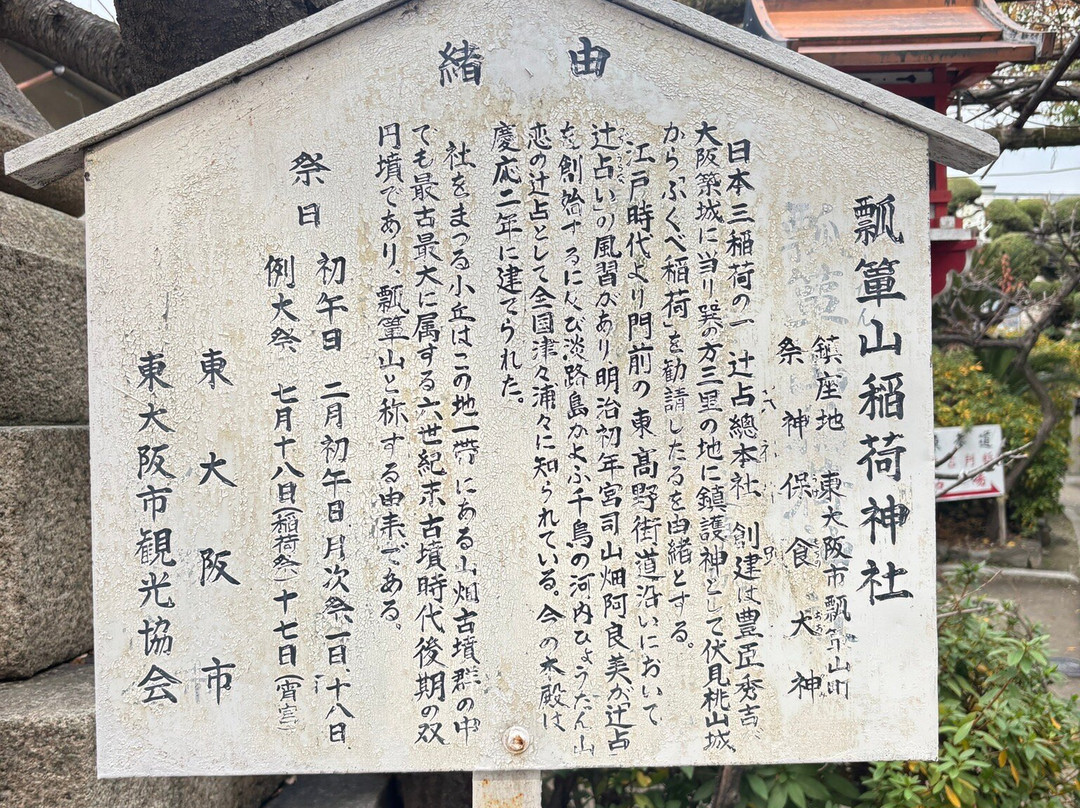 由緒
瓢箪山稲荷神社
鎮座地 東大阪市瓢箪山町
祭神 保食大神
日本三稲荷の一 辻占總本社 創建は豊臣秀吉、
大阪築城に当り巽の方三里の地に鎮護神として伏見桃山城
から「ふくべ稲荷」を勧請したるを由緒とする。
江戸時代より門前の東高野街道沿いにおいて
辻占い」の風習があり明治初年宮司山畑阿良美が「辻占
を創始するに及び淡路島かよふ千鳥の河内ひょうたん山
恋の辻占として全国津々浦々に知られている。今の本殿は
慶応二年に建てられた。
社をまつる小丘はこの地一帯にある山畑古墳群の中
でも最古最大に属する六世紀末古墳時代後期の双
円墳であり、瓢箪山と称する由来である。
祭日 初午日 二月初午日、月次祭、一日、十八日
例大祭、七月十八日(稲荷祭)十七日(宵宮)
東大阪市
東大阪市観光協会